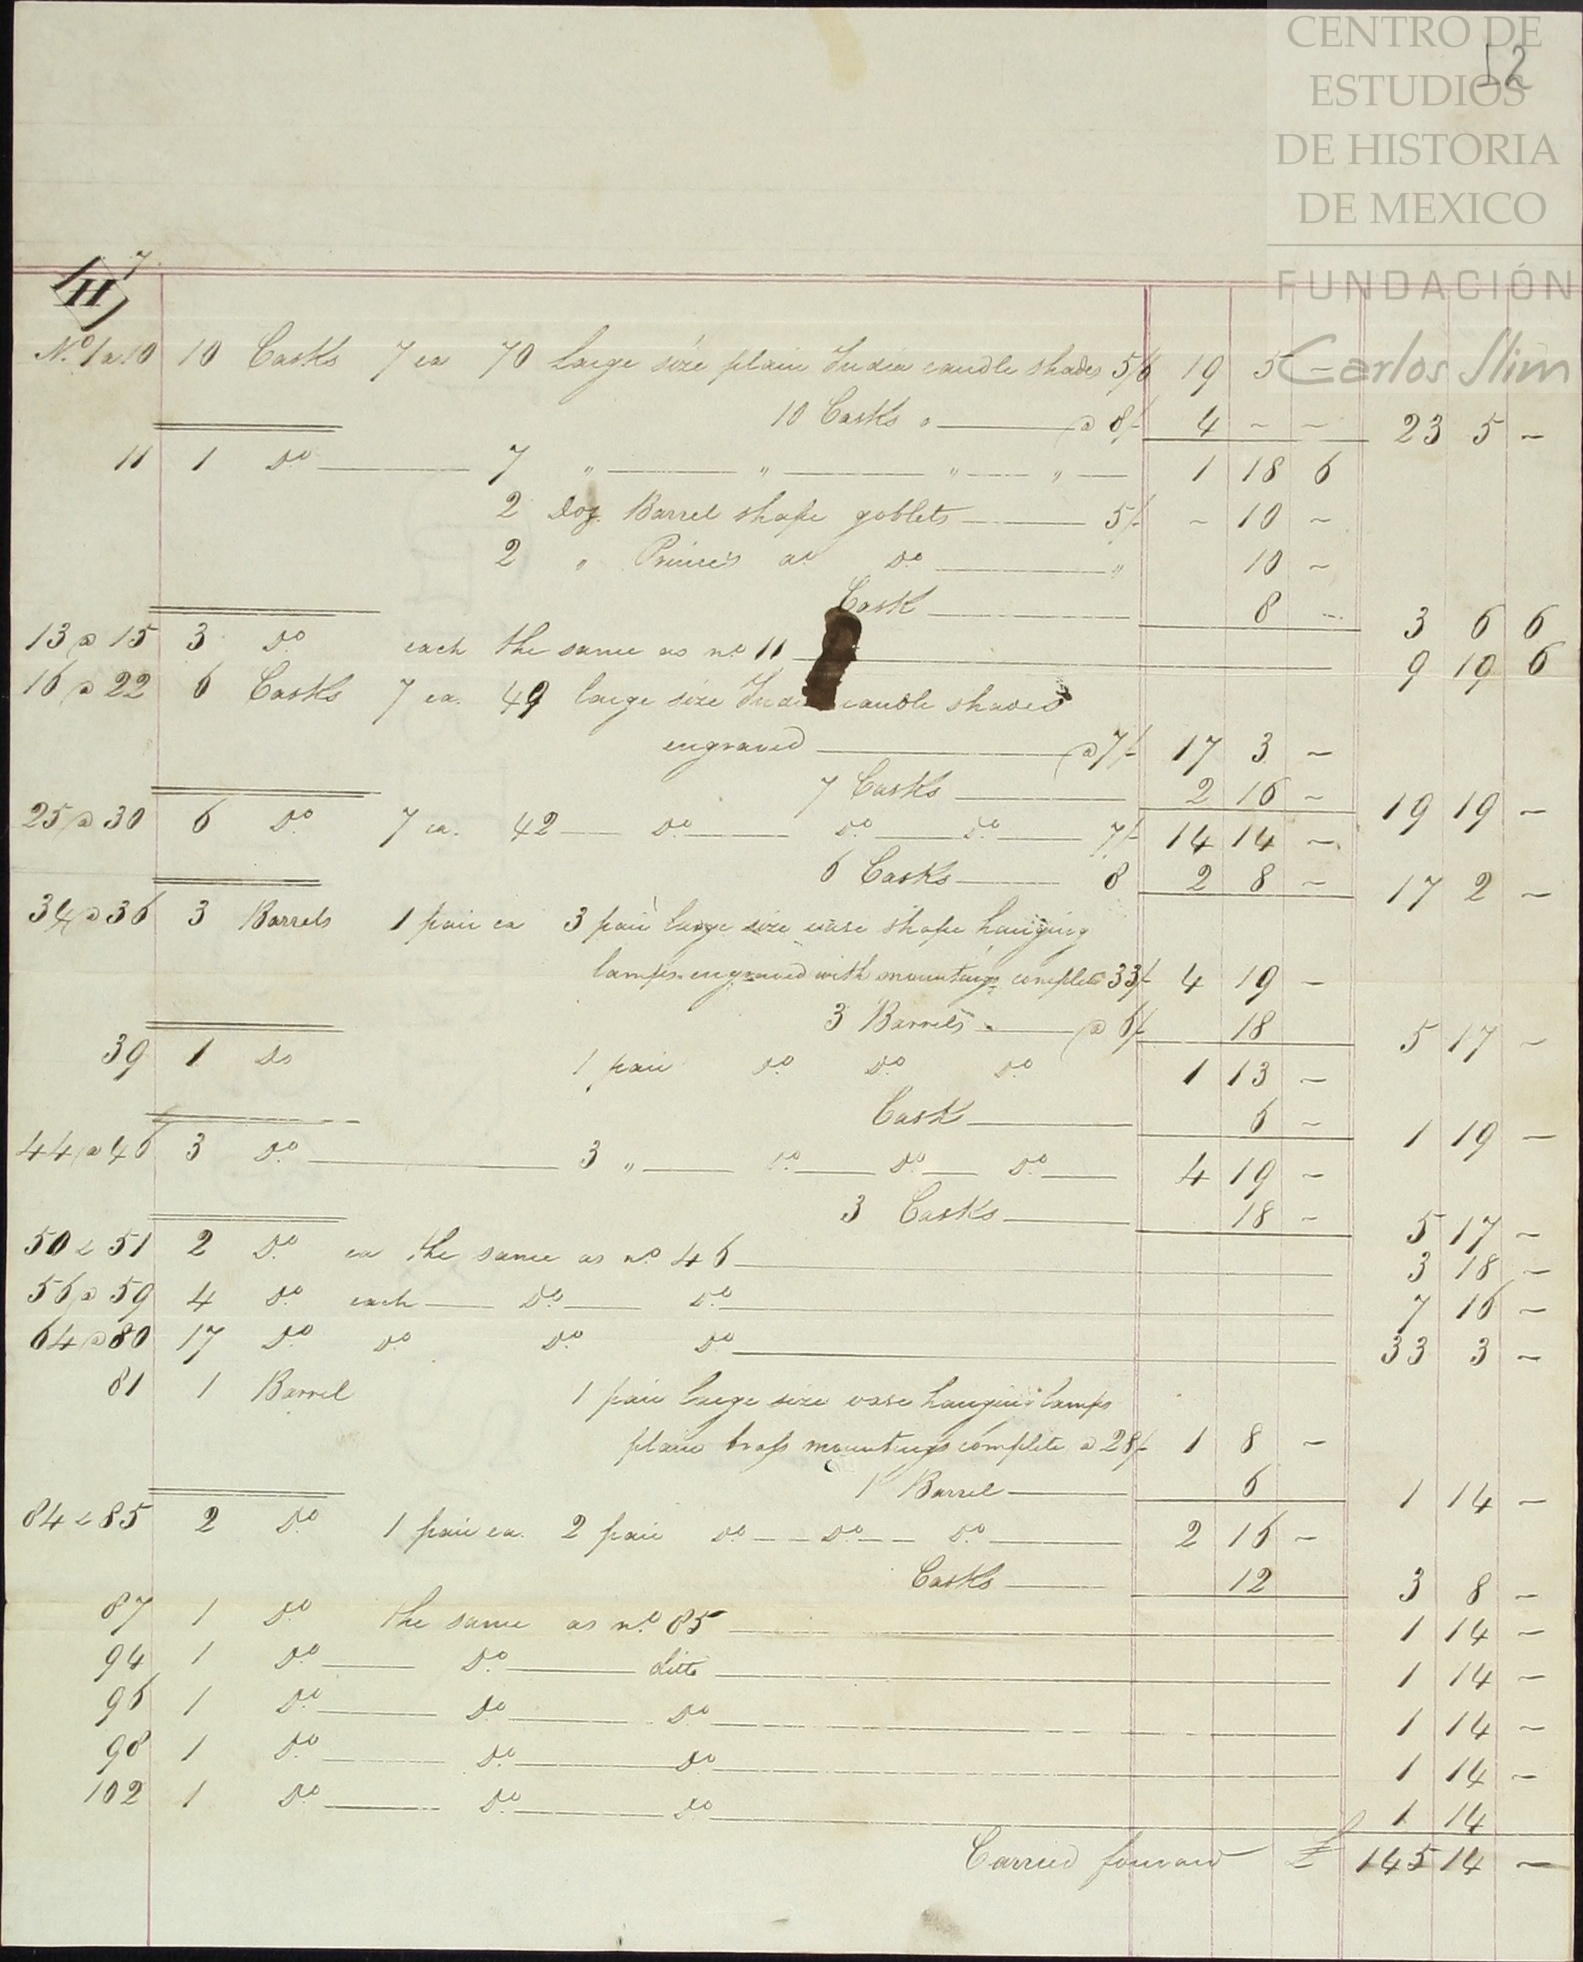 CENTRO DE
ESTUDIOS
DE HISTORIA
DE MEXICO
FUNDACIÓN
Carlos Slim
52
7
H
No. 1 a 10 10 Casks 7 ea 70 large size plain India candle shades 5/6 19 5 –
10 Casks " @ 8/- 4 – – 23 5 –
11 1 Do 7 " " " " 1 18 6
2 Doz. Barrel shape goblets 5/- – 10 –
2 " Princes Do " 10 –
Cask 8 – 3 6 6
13 @ 15 3 Do each the same as no 11 9 19 6
16 @ 22 6 Casks 7 ea. 49 large size India candle shades
engraved @ 7/- 17 3 –
7 Casks 2 16 – 19 19 –
25 @ 30 6 Do 7 ea. 42 Do Do Do 7/- 14 14 –
6 Casks 8 2 8 – 17 2 –
34 @ 36 3 Barrels 1 pair ea 3 pair large size vase shape hanging
lamps engraved with mountings complete 33/- 4 19 –
3 Barrels @ 6/- 18 5 17 –
39 1 Do 1 pair Do Do Do 1 13 –
Cask 6 – 1 19 –
44 @ 46 3 Do 3 " Do Do Do 4 19 –
3 Casks 18 – 5 17 –
50 & 51 2 Do ea the same as no 46 3 18 –
56 @ 59 4 Do each Do Do 7 16 –
64 @ 80 17 Do Do Do Do 33 3 –
81 1 Barrel 1 pair large size vase hanging lamps
plain brass mountings complete @ 28/- 1 8 –
1 Barrel 6 1 14 –
84 & 85 2 Do 1 pair ea. 2 pair Do Do Do 2 16 –
Casks 12 3 8 –
87 1 Do the same as no 85 1 14 –
94 1 Do Do ditto 1 14 –
96 1 Do Do Do 1 14 –
98 1 Do Do Do 1 14 –
102 1 Do Do Do 1 14
Carried forward £ 145 14 –